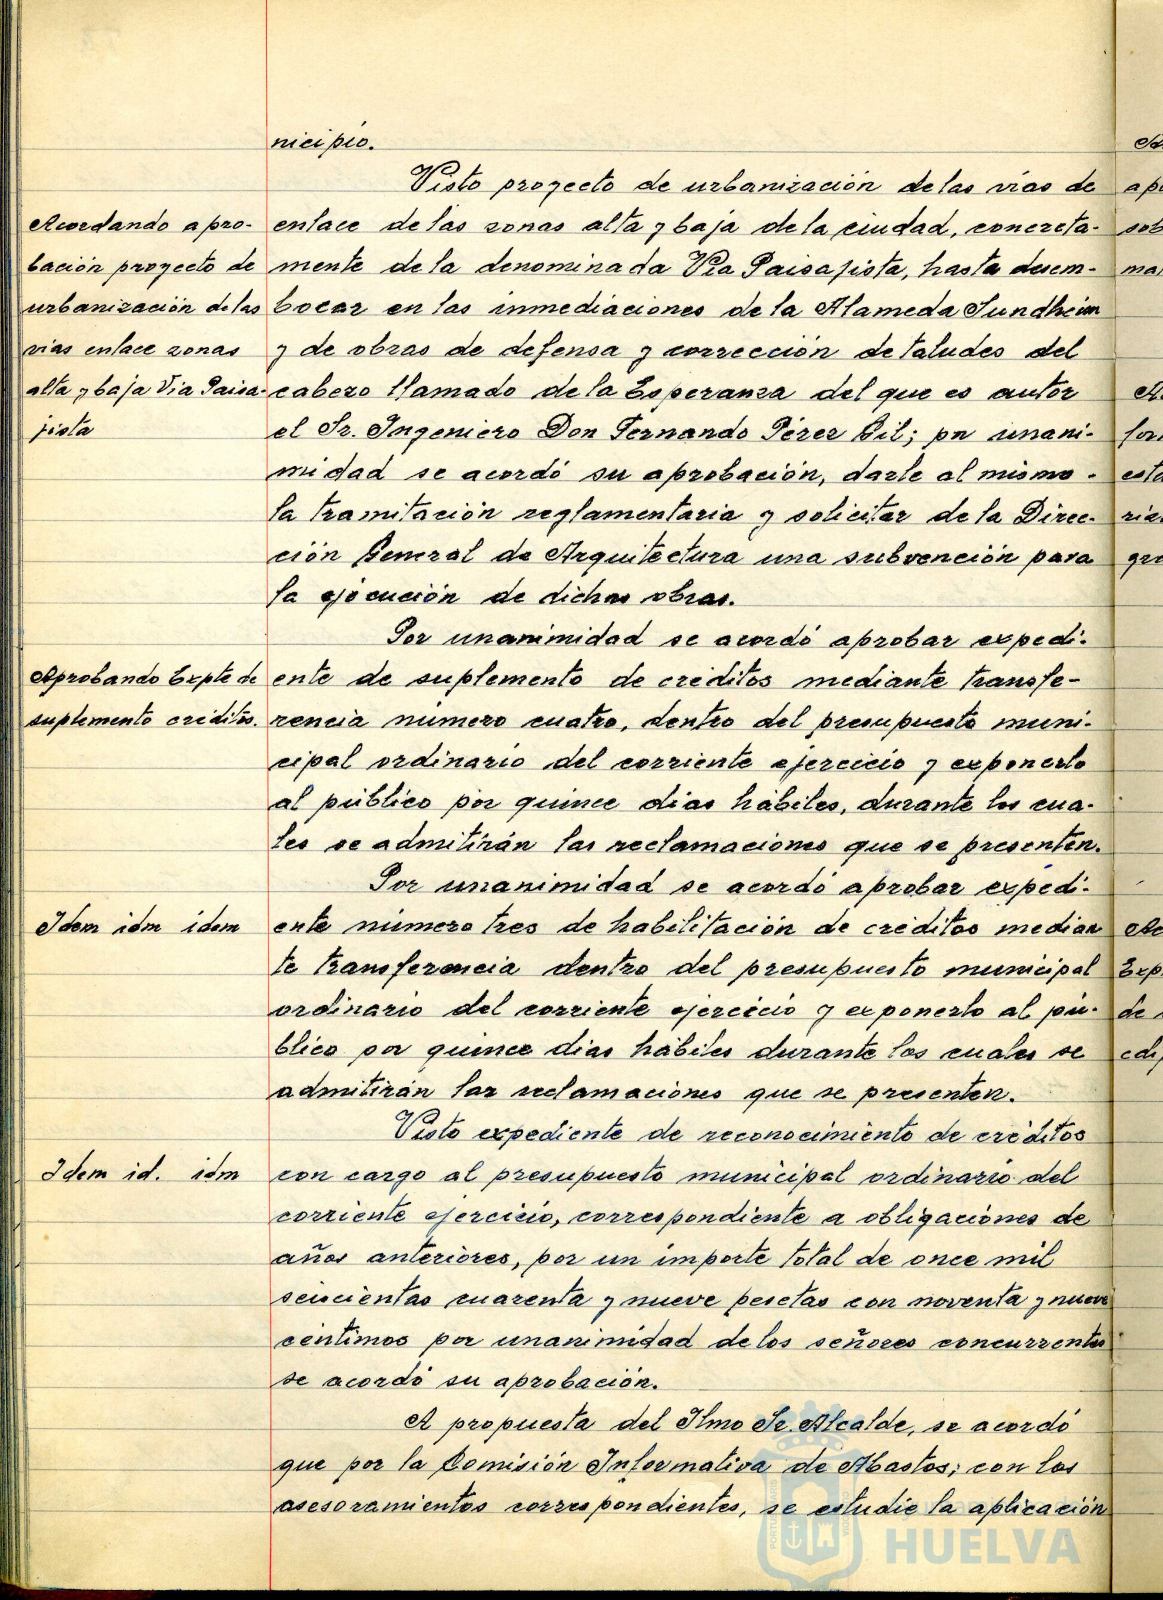 nicipio.
Visto proyecto de urbanización de las vias de
Acordando apro-
enlace de las zonas alta y baja de la ciudad, concreta-
bación proyecto de
mente de la denominada Via Paisajista, hasta desem-
urbanización de las
bocar en las inmediaciones de la Alameda Sundheim
vias enlace zonas
y de obras de defensa y corrección de taludes del
alta y baja Via Paisa-
cabezo llamado de la Esperanza del que es autor
jista
el Sr. Ingeniero Don Fernando Pérez Gil; pn unani-
midad se acordó su aprobación, darle al mismo -
la tramitación reglamentaria y solicitar de la Direc-
ción General de Arquitectura una subvención para
la ejecución de dichas obras.
Por unanimidad se acordó aprobar expedi-
Aprobando Expte de
ente de suplemento de créditos mediante transfe-
suplemento créditos.
rencia número cuatro, dentro del presupuesto muni-
cipal ordinario del corriente ejercicio y exponerlo
al público por quince dias hábiles, durante los cua-
les se admitirán las reclamaciones que se presenten.
Por unanimidad se acordó aprobar expedi-
Idem idm idem
ente número tres de habilitación de créditos median
te transferencia dentro del presupuesto municipal
ordinario del corriente ejercicio y exponerlo al pú-
blico por quince dias hábiles durante los cuales se
admitirán las reclamaciones que se presenten.
Visto expediente de reconocimiento de créditos
Idem id. idm
con cargo al presupuesto municipal ordinario del
corriente ejercicio, correspondiente a obligaciones de
años anteriores, por un importe total de once mil
seiscientas cuarenta y nueve pesetas con noventa y nueve
céntimos por unanimidad de los señores concurrentes
se acordó su aprobación.
A propuesta del Ilmo Sr. Alcalde, se acordó
que por la Comisión Informativa de Abastos; con los
asesoramientos correspondientes, se estudie la aplicación
HUELVA